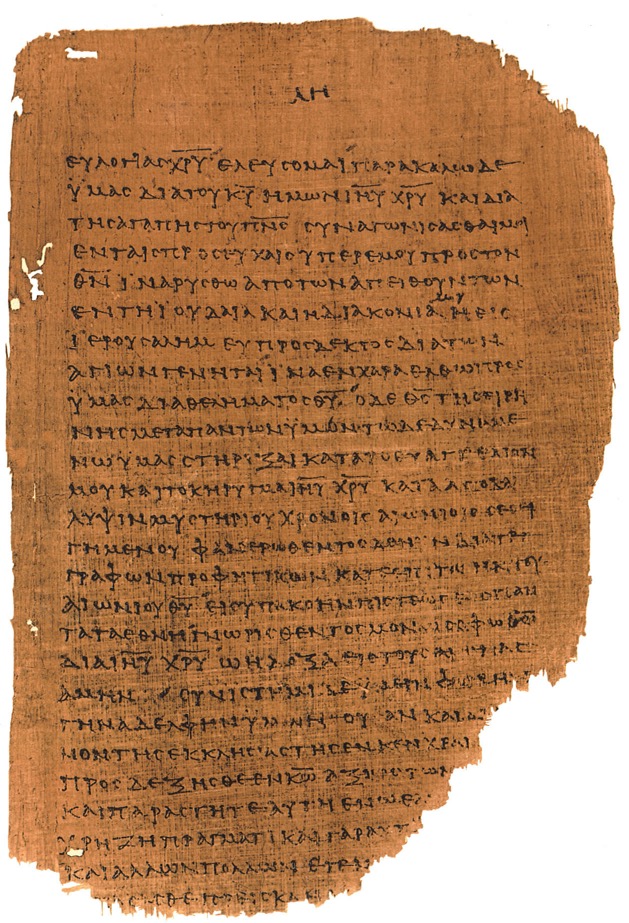 ΛΗ
ΕΥΛΟΓΙΑϹ Χ̅Ρ̅Υ̅ ΕΛΕΥϹΟΜΑΙ ΠΑΡΑΚΑΛΩ ΔΕ
ΥΜΑϹ ΔΙΑ ΤΟΥ Κ̅Υ̅ ΗΜΩΝ Ι̅Η̅Υ̅ Χ̅Ρ̅Υ̅ ΚΑΙ ΔΙΑ
ΤΗϹ ΑΓΑΠΗϹ ΤΟΥ Π̅Ν̅Ϲ̅ ϹΥΝΑΓΩΝΙϹΑϹΘΑΙ ΜΟΙ
ΕΝ ΤΑΙϹ ΠΡΟϹΕΥΧΑΙϹ ΥΠΕΡ ΕΜΟΥ ΠΡΟϹ ΤΟΝ
Θ̅Ν̅ ΙΝΑ ΡΥϹΘΩ ΑΠΟ ΤΩΝ ΑΠΕΙΘΟΥΝΤΩΝ
ΕΝ ΤΗ ΙΟΥΔΑΙΑ ΚΑΙ Η ΔΙΑΚΟΝΙΑ ΜΟΥ Η ΕΙϹ
ΙΕΡΟΥϹΑΛΗΜ ΕΥΠΡΟϹΔΕΚΤΟϹ ΔΙΑ ΤΩΝ
ΑΓΙΩΝ ΓΕΝΗΤΑΙ ΙΝΑ ΕΝ ΧΑΡΑ ΕΛΘΩ ΠΡΟϹ
ΥΜΑϹ ΔΙΑ ΘΕΛΗΜΑΤΟϹ Θ̅Υ̅ Ο ΔΕ Θ̅Ϲ̅ ΤΗϹ ΕΙΡΗ
ΝΗϹ ΜΕΤΑ ΠΑΝΤΩΝ ΥΜΩΝ ΤΩ ΔΕ ΔΥΝΑΜΕ
ΝΩ ΥΜΑϹ ϹΤΗΡΙΞΑΙ ΚΑΤΑ ΤΟ ΕΥΑΓΓΕΛΙΟΝ
ΜΟΥ ΚΑΙ ΤΟ ΚΗΡΥΓΜΑ Ι̅Η̅Υ̅ Χ̅Ρ̅Υ̅ ΚΑΤΑ ΑΠΟΚΑ
ΛΥΨΙΝ ΜΥϹΤΗΡΙΟΥ ΧΡΟΝΟΙϹ ΑΙΩΝΙΟΙϹ ϹΕϹΕΙ
ΓΗΜΕΝΟΥ ΦΑΝΕΡΩΘΕΝΤΟϹ ΔΕ ΝΥΝ ΔΙΑ ΤΕ
ΓΡΑΦΩΝ ΠΡΟΦΗΤΙΚΩΝ ΚΑΤ ΕΠΙΤΑΓΗΝ ΤΟΥ
ΑΙΩΝΙΟΥ Θ̅Υ̅ ΕΙϹ ΥΠΑΚΟΗΝ ΠΙϹΤΕΩϹ ΕΙϹ ΠΑΝ
ΤΑ ΤΑ ΕΘΝΗ ΓΝΩΡΙϹΘΕΝΤΟϹ ΜΟΝΩ ϹΟΦΩ Θ̅Ω̅
ΔΙΑ Ι̅Η̅Υ̅ Χ̅Ρ̅Υ̅ Ω Η ΔΟΞΑ ΕΙϹ ΤΟΥϹ ΑΙΩΝΑϹ
ΑΜΗΝ ϹΥΝΙϹΤΗΜΙ ΔΕ ΥΜΕΙΝ ΦΟΙΒΗΝ
ΤΗΝ ΑΔΕΛΦΗΝ ΥΜΩΝ ΟΥϹΑΝ ΚΑΙ ΔΙ
ΝΟΝ ΤΗϹ ΕΚΚΛΗϹΙΑϹ ΤΗϹ ΕΝ ΚΕΝΧΡΑΙ
ΠΡΟϹΔΕΞΗϹΘΕ ΕΝ Κ̅Ω̅ ΑΞΙΩϹ ΤΩΝ
ΚΑΙ ΠΑΡΑϹΤΗΤΕ ΑΥΤΗ ΕΝ Ω Ε
ΧΡΗΖΗ ΠΡΑΓΜΑΤΙ ΚΑΙ ΓΑΡ ΑΥΤ
ΚΑΙ ΑΛΛΩΝ ΠΟΛΛΩΝ ΕΓΕΝ